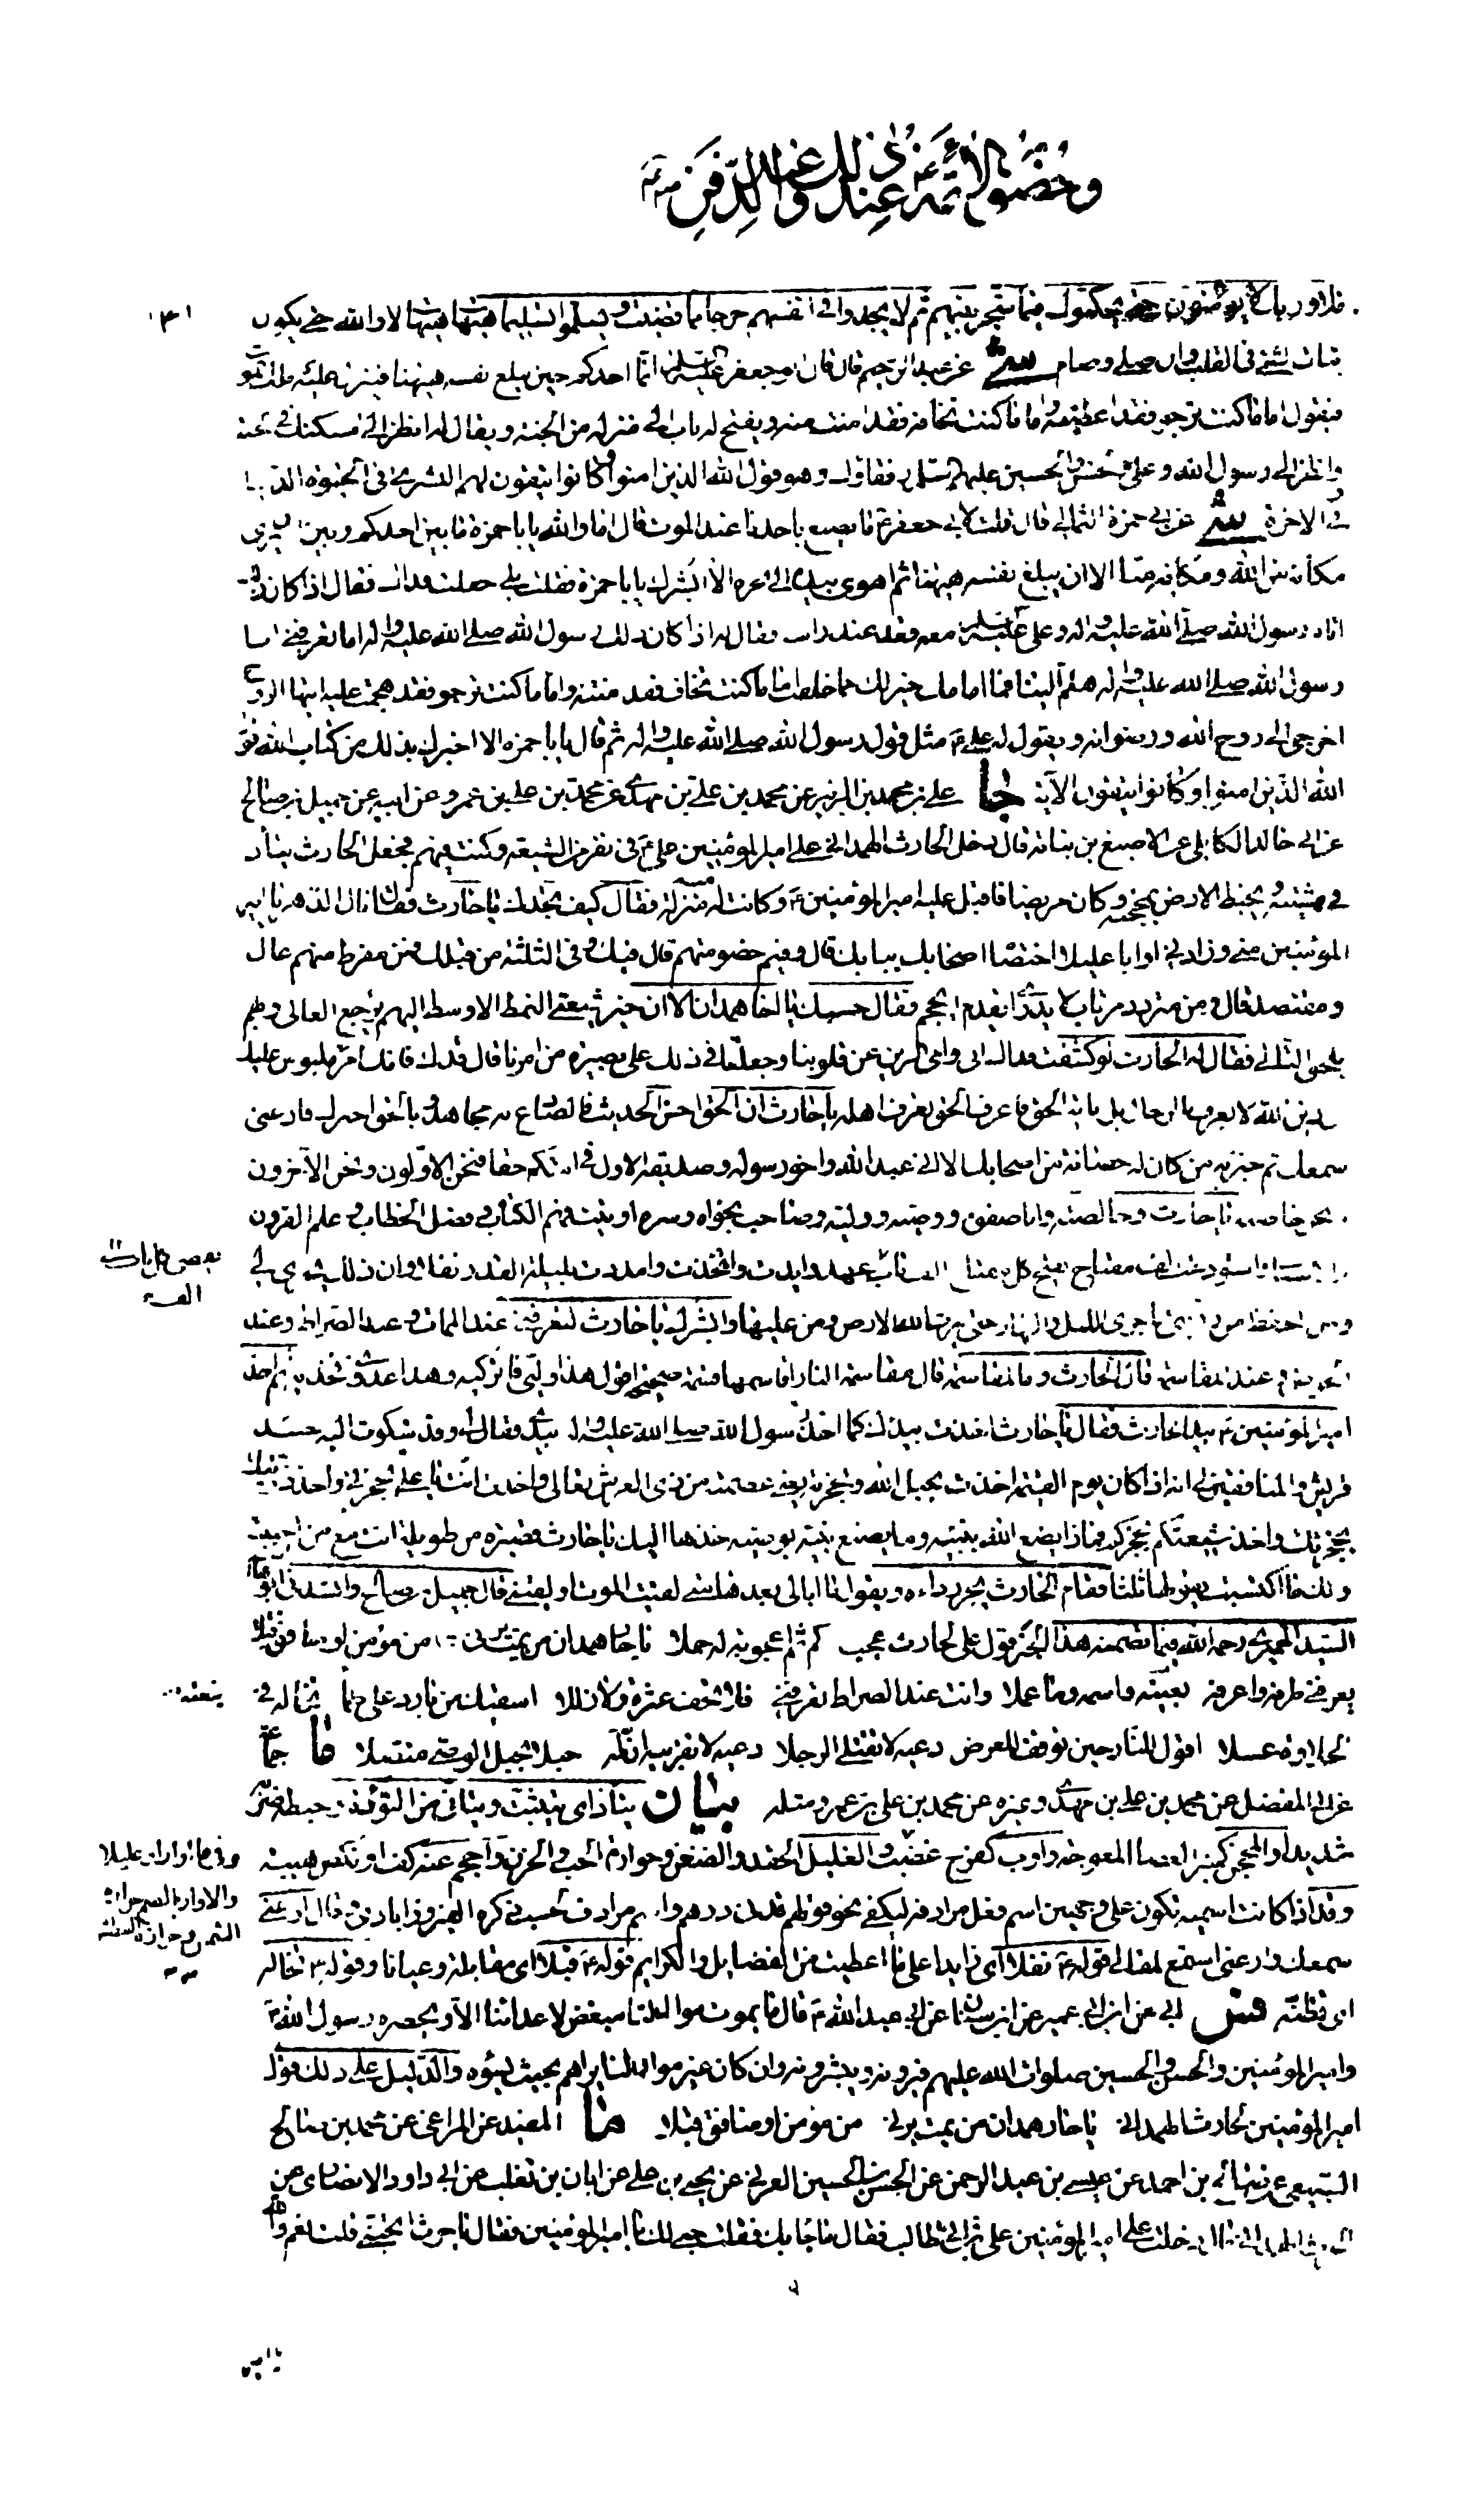 وحضور الأئمة ع عند ذلك وعند الدفن
فلا وربك لا يؤمنون حتى يحكموك فيما شجر بينهم ثم لا يجدوا في انفسهم حرجا مما قضيت ويسلموا تسليما هيهات هيهات لا والله حتى يكون
ثبات الشئ في القلب وان صلى وصام شى عن عبد الرحيم قال قال ابو جعفر عليه السلم انما احدكم حين يبلغ نفسه ههنا فينزل عليه ملك الموت
فيقول اما ما كنت ترجو فقد اعطيته واما ما كنت تخافه فقد امنت منه ويفتح له باب الى منزله من الجنة ويقال له انظر الى مسكنك في الجنة
وانظر الى رسول الله وعلى والحسن والحسين عليهم السلم رفقاؤك وهو قول الله الذين امنوا وكانوا يتقون لهم البشرى في الحيوة الدنيا
وفي الاخرة شى عن ابي حمزة الثمالي قال قلت لابي جعفر ع ما يصنع باحدنا عند الموت قال اما والله يا با حمزة ما بين احدكم وبين ان يرى
مكانه من الله ومكانه منا الا ان يبلغ نفسه ههنا ثم اهوى بيده الى نحره الا ابشرك يا با حمزة فقلت بلى جعلت فداك فقال اذا كان ذلك
اتاه رسول الله صلى الله عليه واله وعلى عليه السلم معه فقعد عند راسه فقال له اذا كان ذلك رسول الله صلى الله عليه واله اما تعرفني انا
رسول الله صلى الله عليه واله هلم الينا فما امامك خير لك مما خلفت اما ما كنت تخاف فقد امنته واما ما كنت ترجو فقد هجمت عليه ايتها الروح
اخرجى الى روح الله ورضوانه ويقول له على ع مثل قول رسول الله صلى الله عليه واله ثم قال يا با حمزه الا اخبرك بذلك من كتاب الله قول
الله الذين امنوا وكانوا يتقون الاية جا على بن محمد بن الزبير عن محمد بن على بن مهدى عن محمد بن على بن عمرو عن ابيه عن جميل بن صالح
عن ابي خالد الكابلى عن الاصبغ بن نباته قال دخل الحارث الهمداني على امير المؤمنين على ع في نفر من الشيعة وكنت فيهم فجعل الحارث يتأد
في مشيته ويخبط الارض بمحجنه وكان مريضا فاقبل عليه امير المؤمنين ع وكانت له منه منزلة فقال كيف تجدك يا حارث فقال نال الدهر يا امير
المؤمنين منى وزادني اوابا غليلا اختصام اصحابك ببابك قال وفيم خصومتهم قال فيك وفي الثلثة من قبلك فمن مفرط منهم غال
ومقتصد قال ومن متردد مرتاب لا يدرى ايقدم ام يحجم فقال حسبك يا اخا همدان الا ان خير شيعتى النمط الاوسط اليهم يرجع الغالى وبهم
يلحق التالى فقال له الحارث لو كشفت فداك ابي وامى الرين عن قلوبنا وجعلتنا في ذلك على بصيرة من امرنا قال قدك فانك امرؤ ملبوس عليك
ان دين الله لا يعرف بالرجال بل باية الحق فاعرف الحق تعرف اهله يا حارث ان الحق احسن الحديث والصادع به مجاهد وبالحق اخبرك فارعنى
سمعك ثم خبر به من كان له حصانة من اصحابك الا اني عبد الله واخو رسوله وصديقه الاول في امتكم حقا فنحن الاولون ونحن الاخرون
يا حارث وخالصته وانا صفوه ووصيه ووليه وصاحب نجواه وسره اوتيت فهم الكتاب وفصل الخطاب وعلم القرون
واستودعت الف مفتاح يفتح كل مفتاح الف باب عهد وايدت واتخذت وامددت بليلة القدر نفلا وان ذلك ليجرى لي
ومن استحفظ من ذريتى ما جرى الليل والنهار حتى يرث الله الارض ومن عليها وابشرك يا حارث لتعرفنى عند الممات وعند الصراط وعند
الحوض وعند المقاسمة قال الحارث وما المقاسمة قال مقاسمة النار اقاسمها قسمة صحيحة اقول هذا وليى فاتركيه وهذا عدوى فخذيه ثم اخذ
امير المؤمنين ع بيد الحارث فقال يا حارث اخذت بيدك كما اخذ رسول الله صلى الله عليه واله بيدى فقال لى وقد شكوت اليه حسد
قريش والمنافقين لى انه اذا كان يوم القيمة اخذت بحبل الله وبحجزته يعنى عصمته من ذى العرش تعالى واخذت انت يا على بحجزتى واخذ ذريتك
بحجزتك واخذ شيعتكم بحجزكم فماذا يصنع الله بنبيه وما يصنع نبيه بوصيه خذها اليك يا حارث قصيرة من طويلة انت مع من احببت
ولك ما اكتسبت يقولها ثلثا فقام الحارث يجر رداءه ويقول ما ابالى بعدها متى لقيت الموت او لقينى قال جميل بن صالح وانشدني ابو هاشم
السيد الحميرى رحمه الله فيما تضمنه هذا الخبر قول على لحارث عجب كم ثم اعجوبة له حملا يا حار همدان من يمت يرنى من مؤمن او منافق قبلا
يعرفنى طرفه واعرفه بعينه واسمه وما عملا وانت عند الصراط تعرفنى فلا تخف عثرة ولا زللا اسقيك من بارد على ظما تخاله في
الحلاوة عسلا اقول للنار حين توقف للعرض دعيه لا تقتلى الرجلا دعيه لا تقربيه ان له حبلا بحبل الوصى متصلا ما جماعة
عن ابي المفضل عن محمد بن على بن مهدى وغيره عن محمد بن على بن عمرو مثله بيان يتأد اى يتثبت ويتأنى من التؤدة وخبطه ضربه
شديدا والمحجن كمنبر العصا المعوجة واوب كفرح غضب والغليل الحقد والضغن وحرارة الحب والحزن واحجم عنه كف او نكص هيبة
وقد اذا كانت اسمية تكون على وجهين اسم فعل مرادفه ليكفى نحو قولهم قدنى درهم واسم مرادف لحسب ذكره الفيروزابادى وقال ارعنى
سمعك وارعنى استمع لمقالى قوله ع نفلا اى زايدا على ما اعطيت من الفضايل والكرايم قوله ع قبلا اى مقابلة وعيانا وقوله ع تخاله
اى تظنه فس ابي عن ابن ابي عمير عن ابن سنان عن ابي عبد الله ع قال ما يموت موال لنا مبغض لاعدائنا الا ويحضره رسول الله ص
وامير المؤمنين والحسن والحسين صلوات الله عليهم فيرونه ويبشرونه وان كان غير موال لنا يراهم بحيث يسؤه والدليل على ذلك قول
امير المؤمنين لحارث الهمداني يا حار همدان من يمت يرنى من مؤمن او منافق قبلا ما المفيد عن المراغى عن محمد بن صالح
السبيعى عن صالح بن احمد عن عيسى بن عبد الرحمن عن الحسن بن الحسين العرني عن يحيى بن على عن ابان بن تغلب عن ابي داود الانصارى عن
الحارث الهمداني قال دخلت على امير المؤمنين على بن ابي طالب فقال ما جا بك فقلت حبى لك يا امير المؤمنين فقال يا حارث اتحبنى قلت نعم والله